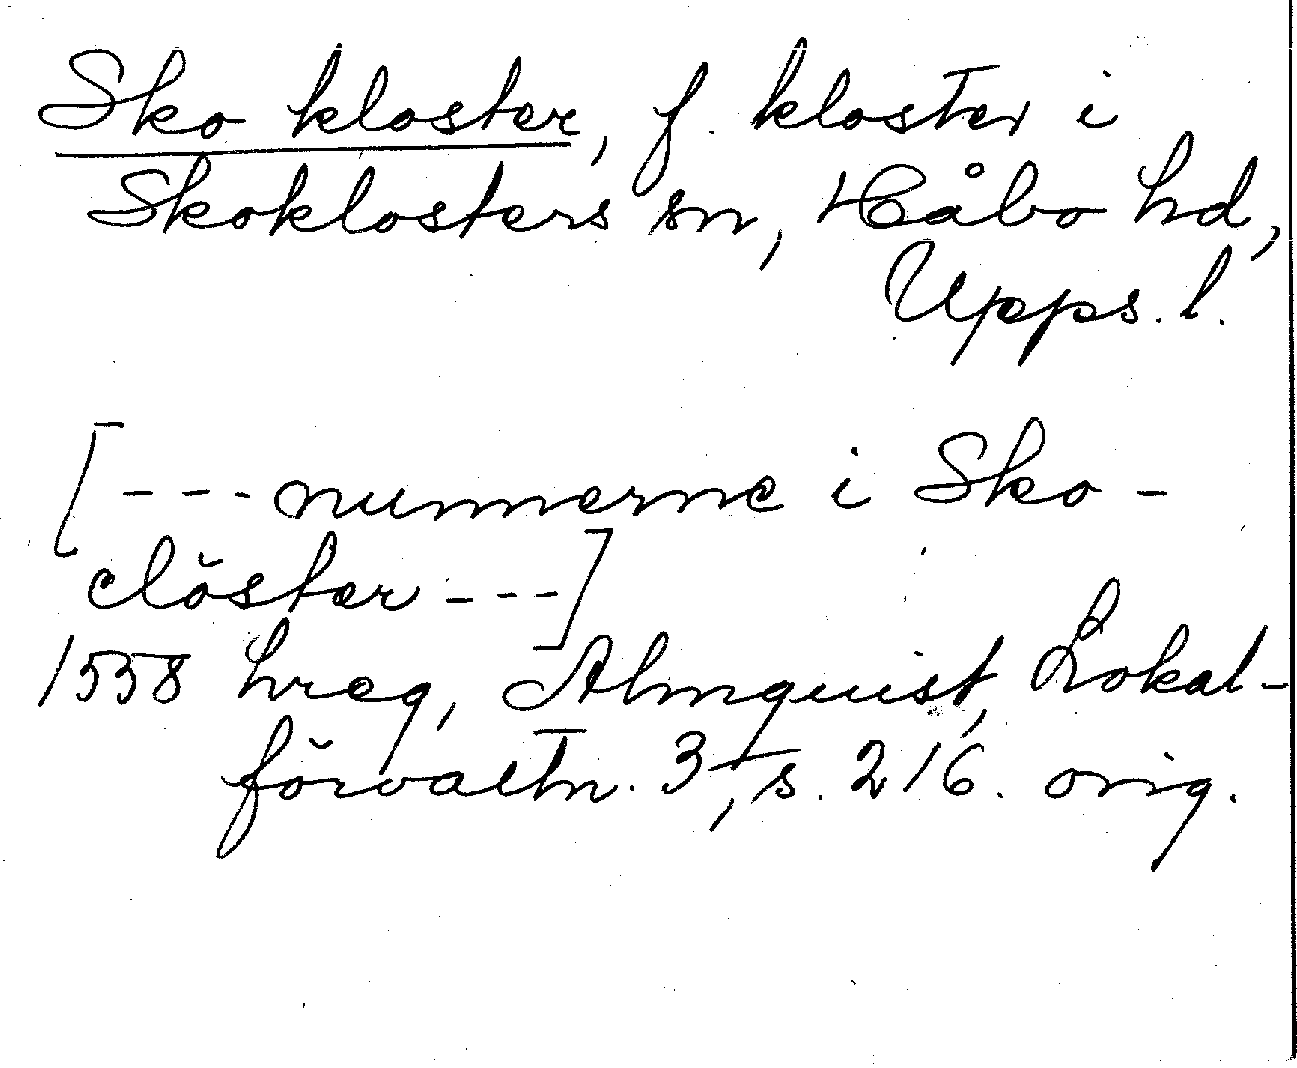 Sko kloster, f. kloster i
Skoklosters sn, Håbo hd,
Upps. l.
[--- nunnerne i Sko-
clöster ---]
1558 hreg, Almquist, Lokal-
förvaltn. 3, s. 216. orig.